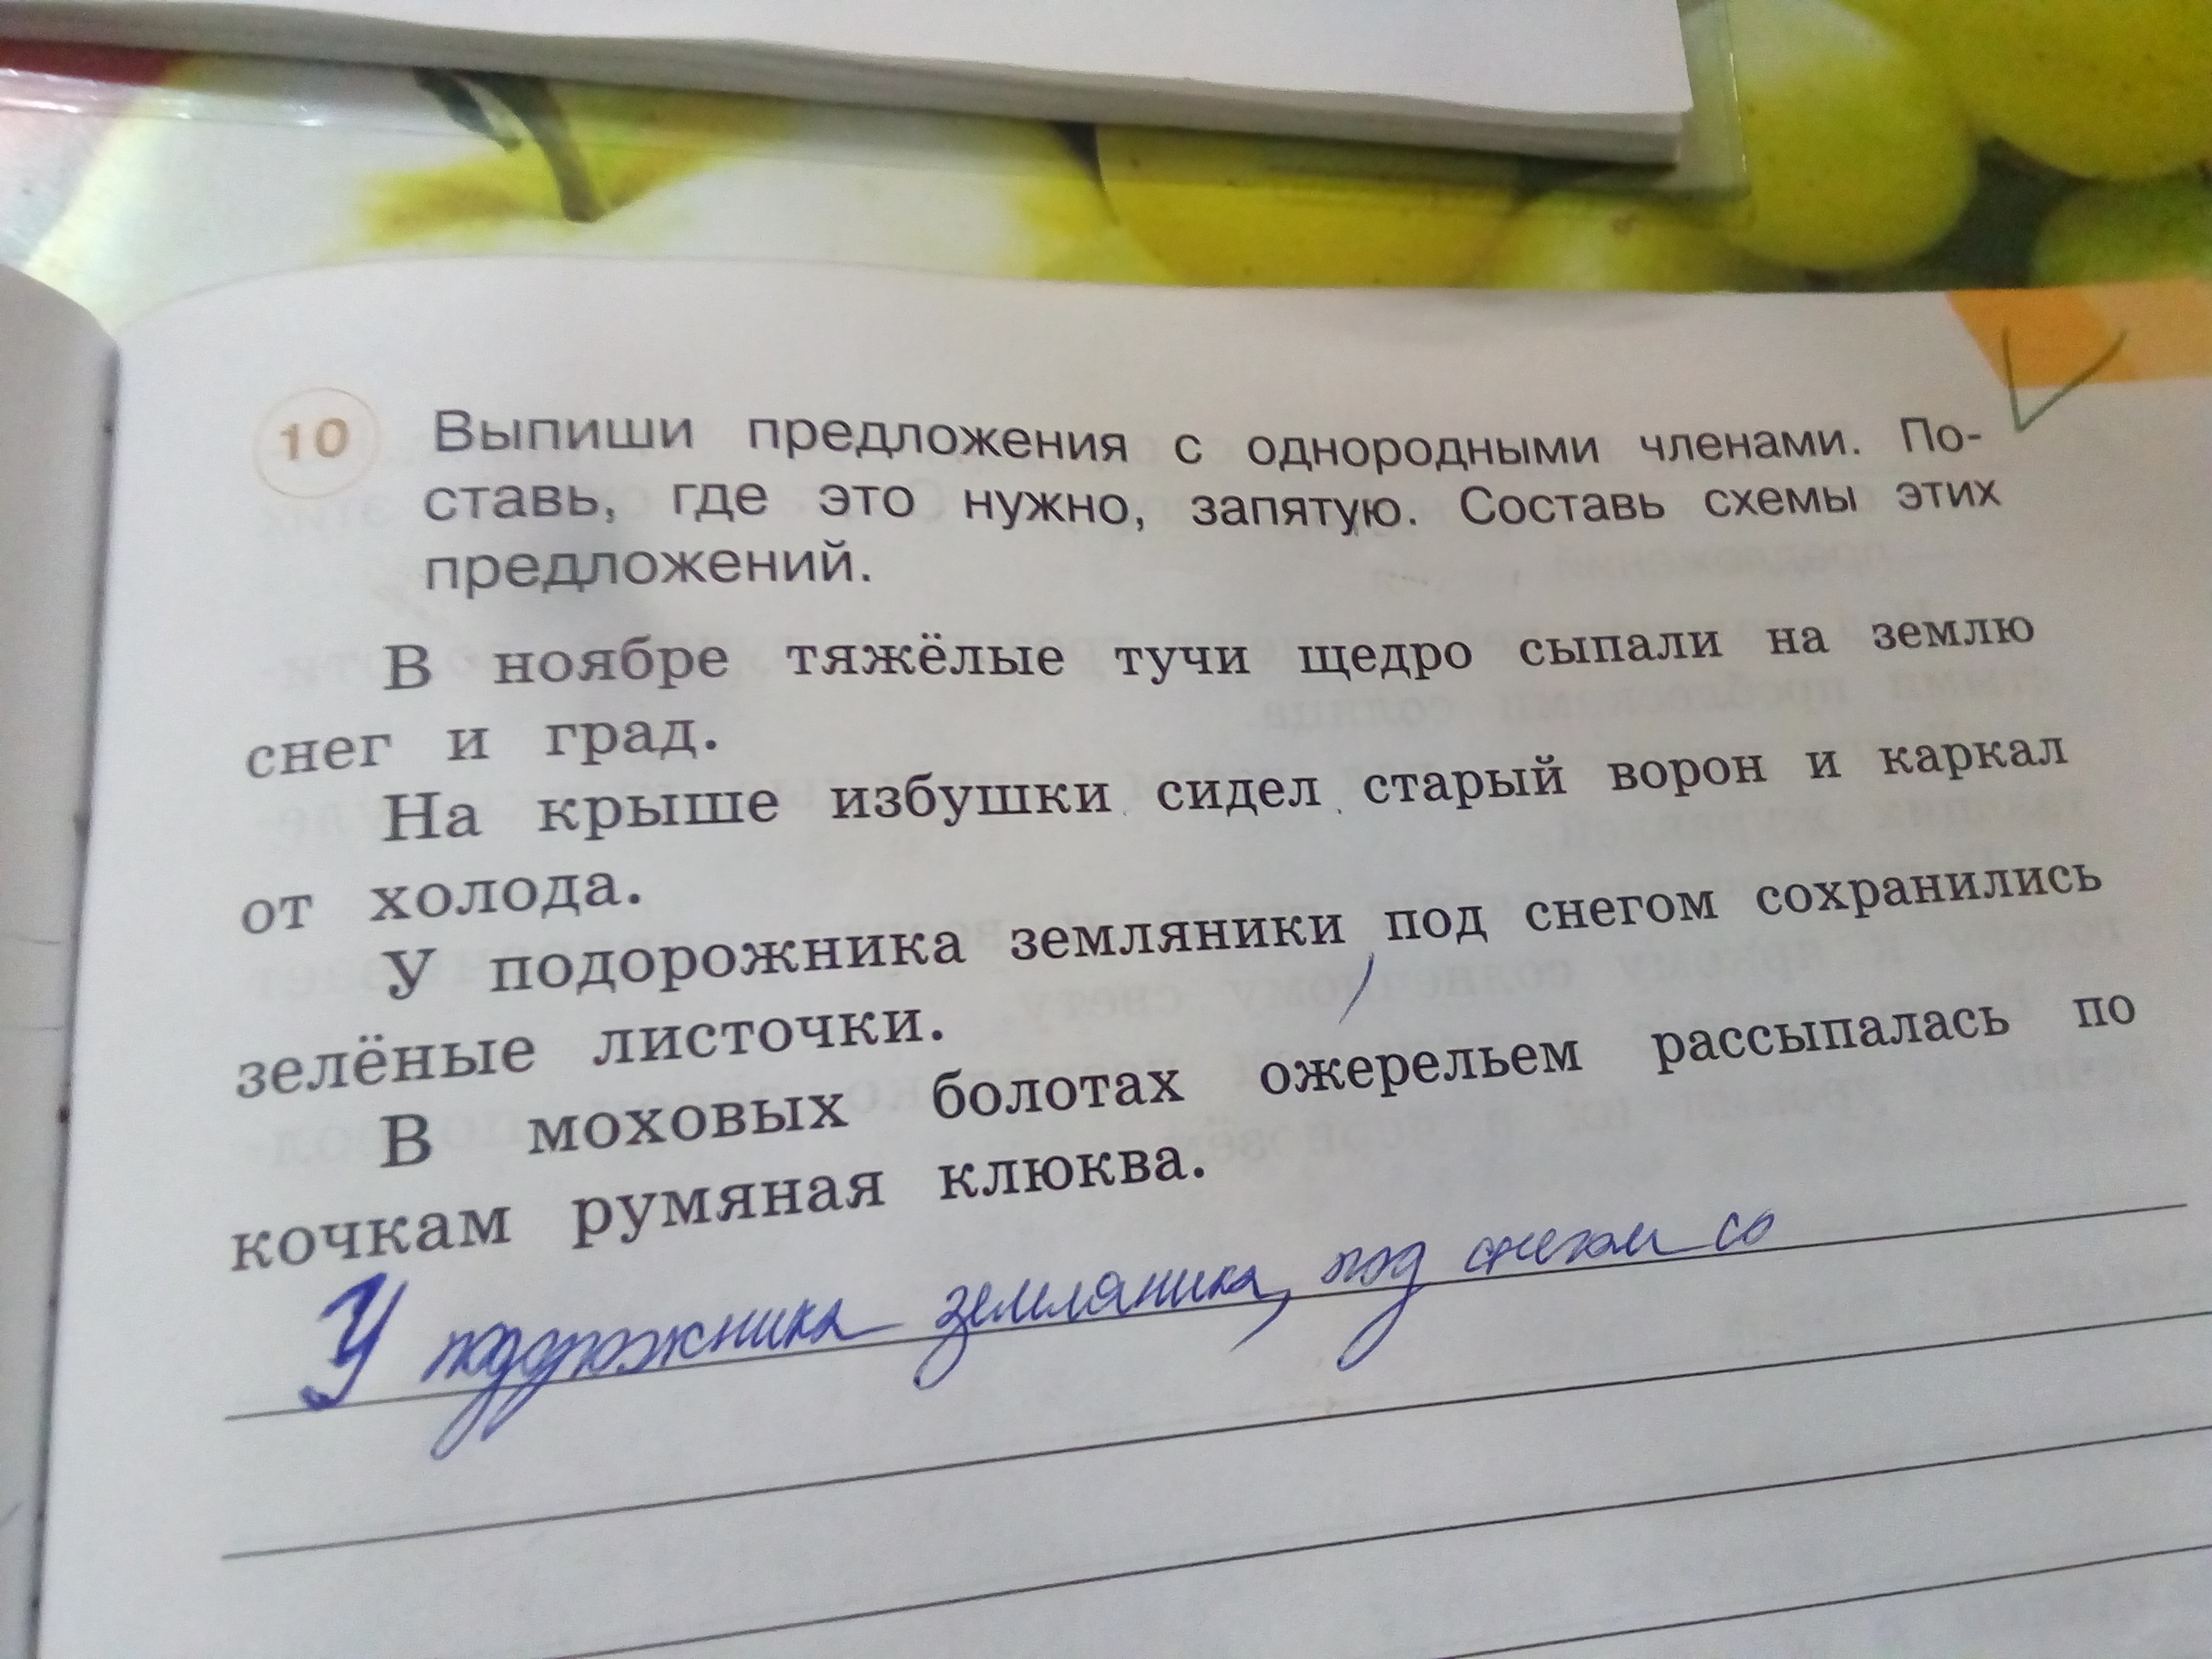 10 Выпиши предложения с однородными членами. По-
ставь, где это нужно, запятую. Составь схемы этих
предложений.
В ноябре тяжёлые тучи щедро сыпали на землю
снег и град.
На крыше избушки сидел старый ворон и каркал
от холода.
У подорожника земляники под снегом сохранились
зелёные листочки.
В моховых болотах ожерельем рассыпалась по
кочкам румяная клюква.
У подорожника земляника, под снегом со